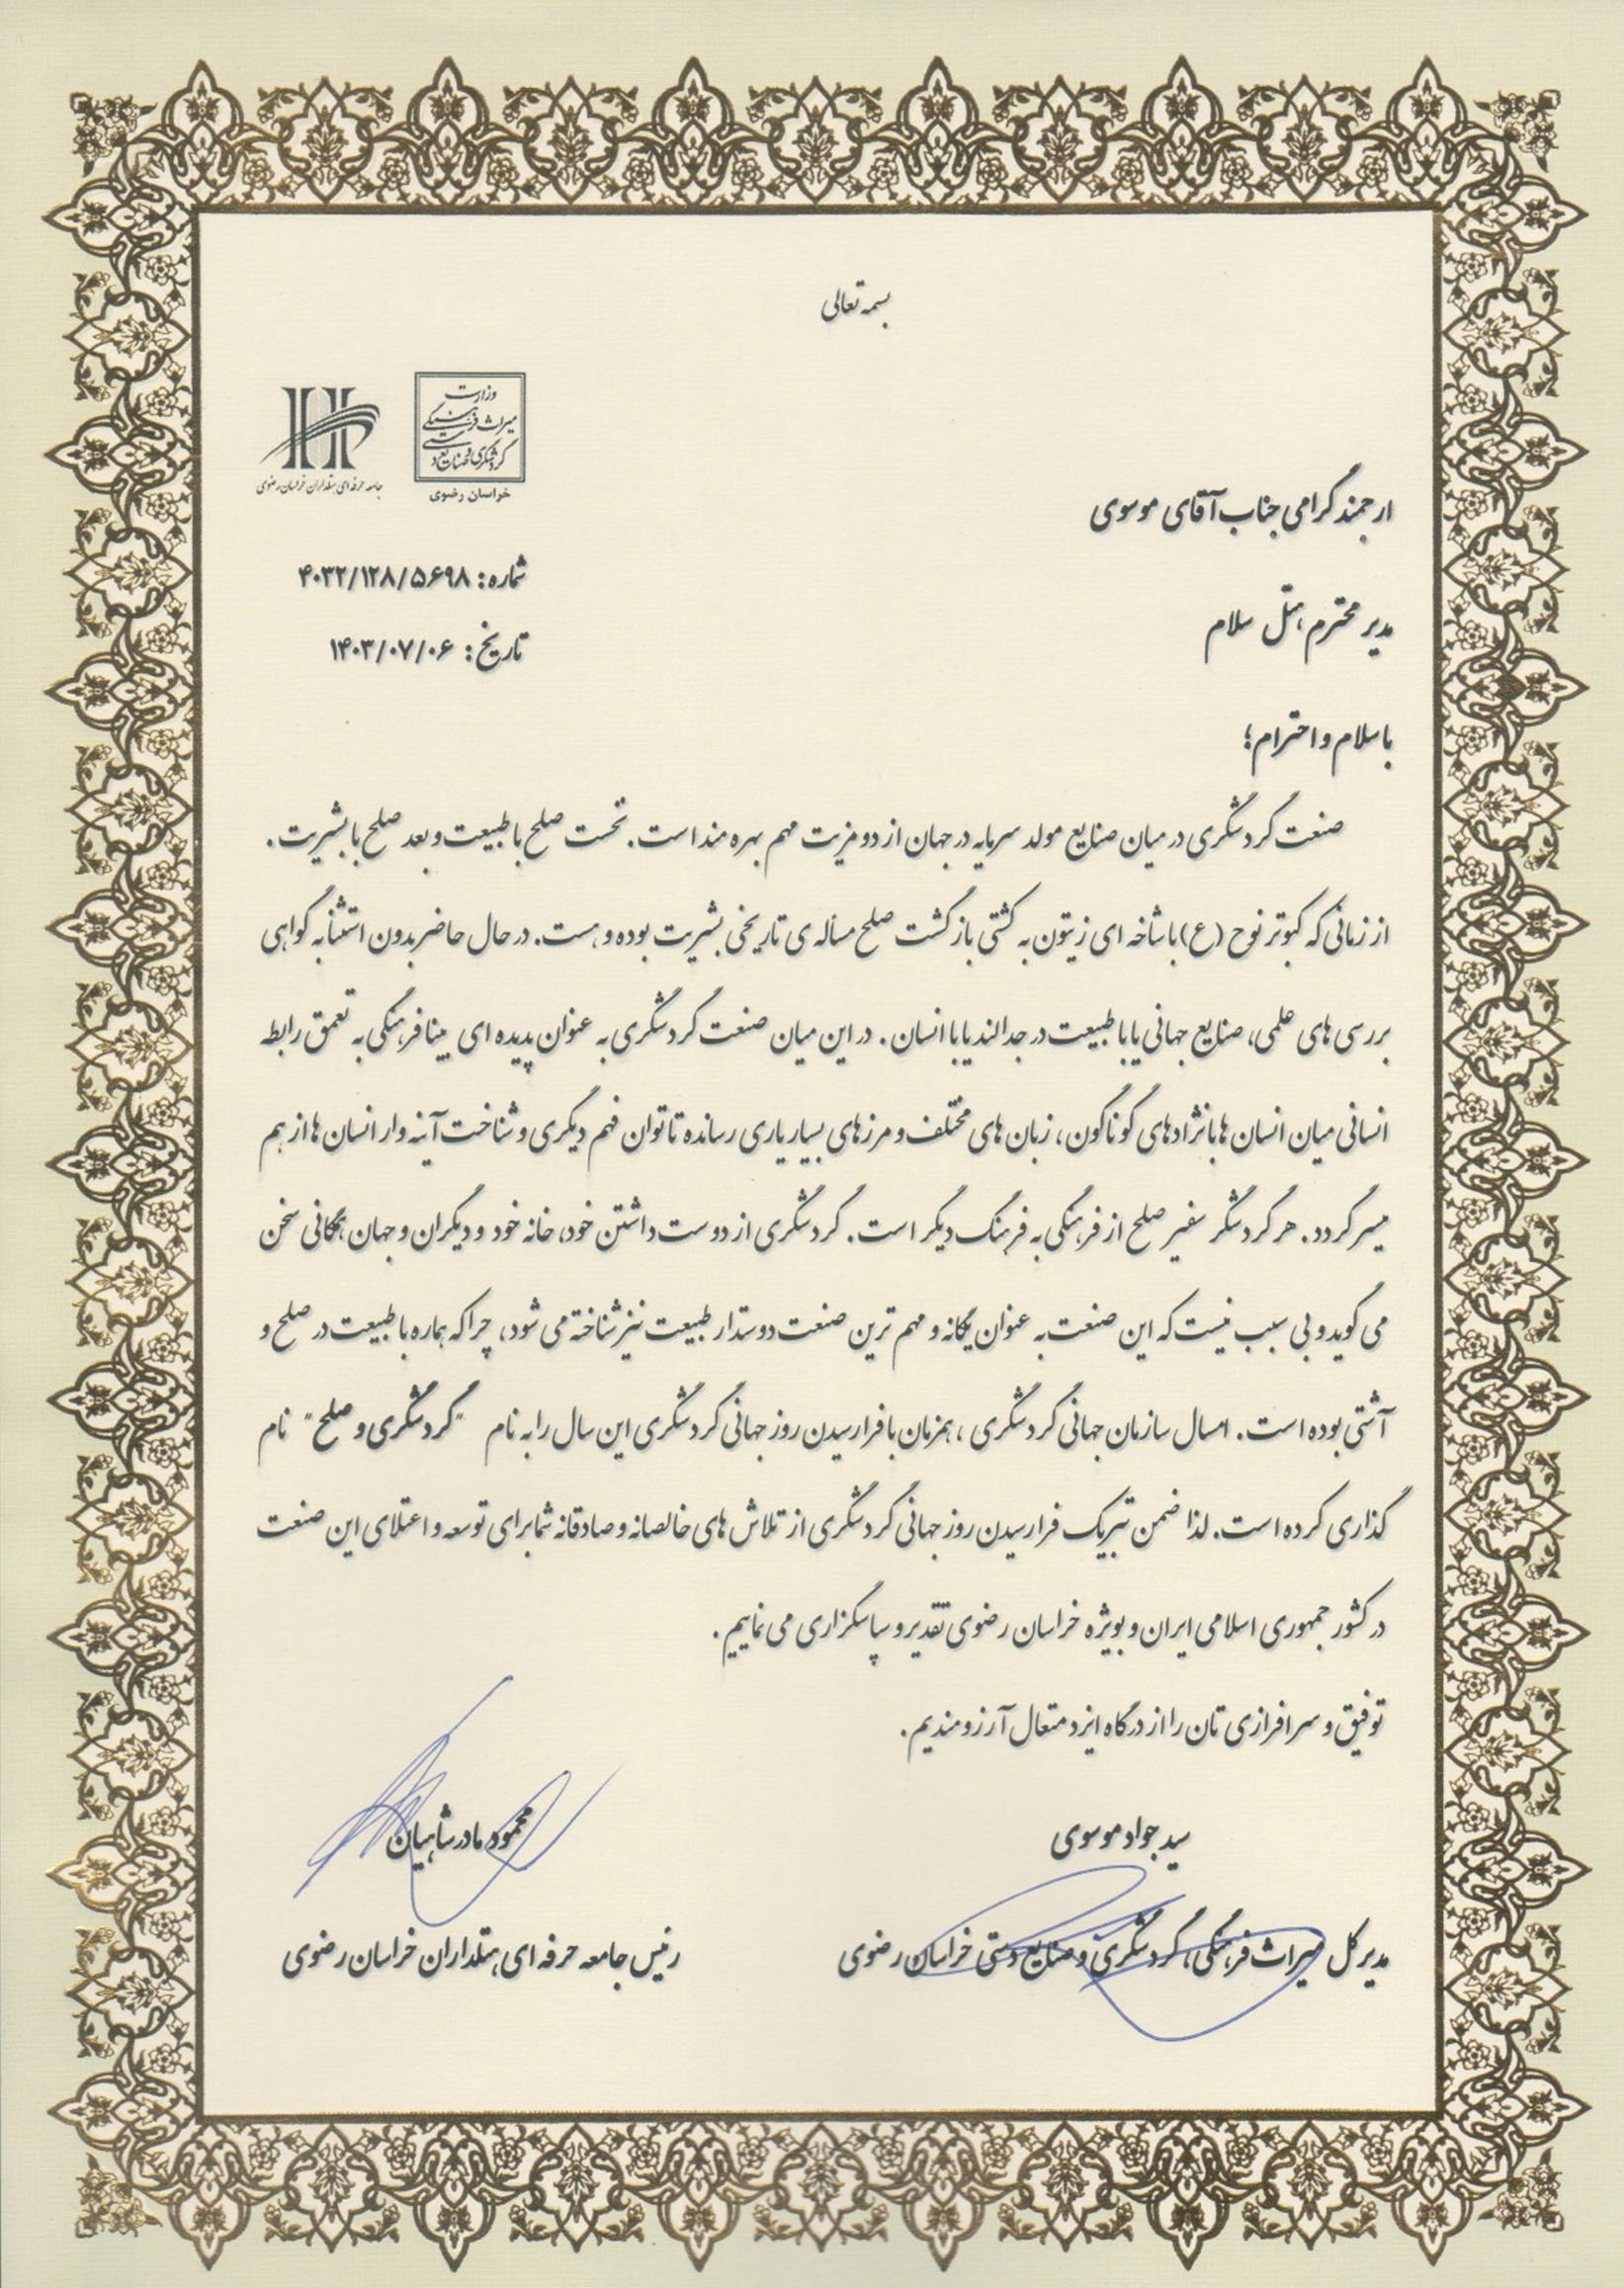 بسمه تعالی
وزارت
میراث فرهنگی
گردشگری و صنایع دستی
خراسان رضوی
جامعه حرفه ای هتلداران خراسان رضوی
ارجمند گرامی جناب آقای موسوی
شماره: ۴۰۳۲/۱۲۸/۵۶۹۸
مدیر محترم هتل سلام
تاریخ: ۱۴۰۳/۰۷/۰۶
با سلام و احترام؛
صنعت گردشگری در میان صنایع مولد سرمایه در جهان از دو مزیت مهم بهره مند است. نخست صلح با طبیعت و بعد صلح با بشریت.
از زمانی که کبوتر نوح (ع) با شاخه ای زیتون به کشتی بازگشت صلح مساله ی تاریخی بشریت بوده و هست. در حال حاضر بدون استثنا به گواهی
بررسی های علمی، صنایع جهانی یا با طبیعت در جدالند یا با انسان. در این میان صنعت گردشگری به عنوان پدیده ای بینافرهنگی به تعمق رابطه
انسانی میان انسان ها با نژادهای گوناگون، زبان های مختلف و مرزهای بسیار یاری رسانده تا توان فهم دیگری و شناخت آینه وار انسان ها از هم
میسر گردد. هر گردشگر سفیر صلح از فرهنگی به فرهنگ دیگر است. گردشگری از دوست داشتن خود، خانه خود و دیگران و جهان همگانی سخن
می گوید و بی سبب نیست که این صنعت به عنوان یگانه و مهم ترین صنعت دوستدار طبیعت نیز شناخته می شود، چرا که هماره با طبیعت در صلح و
آشتی بوده است. امسال سازمان جهانی گردشگری، همزمان با فرارسیدن روز جهانی گردشگری این سال را به نام "گردشگری و صلح" نام
گذاری کرده است. لذا ضمن تبریک فرارسیدن روز جهانی گردشگری از تلاش های خالصانه و صادقانه شما برای توسعه و اعتلای این صنعت
در کشور جمهوری اسلامی ایران و بویژه خراسان رضوی تقدیر و سپاسگزاری می نماییم.
توفیق و سرافرازی تان را از درگاه ایزد متعال آرزومندیم.
سید جواد موسوی
مدیر کل میراث فرهنگی، گردشگری و صنایع دستی خراسان رضوی
محمود مادرشاهیان
رئیس جامعه حرفه ای هتلداران خراسان رضوی